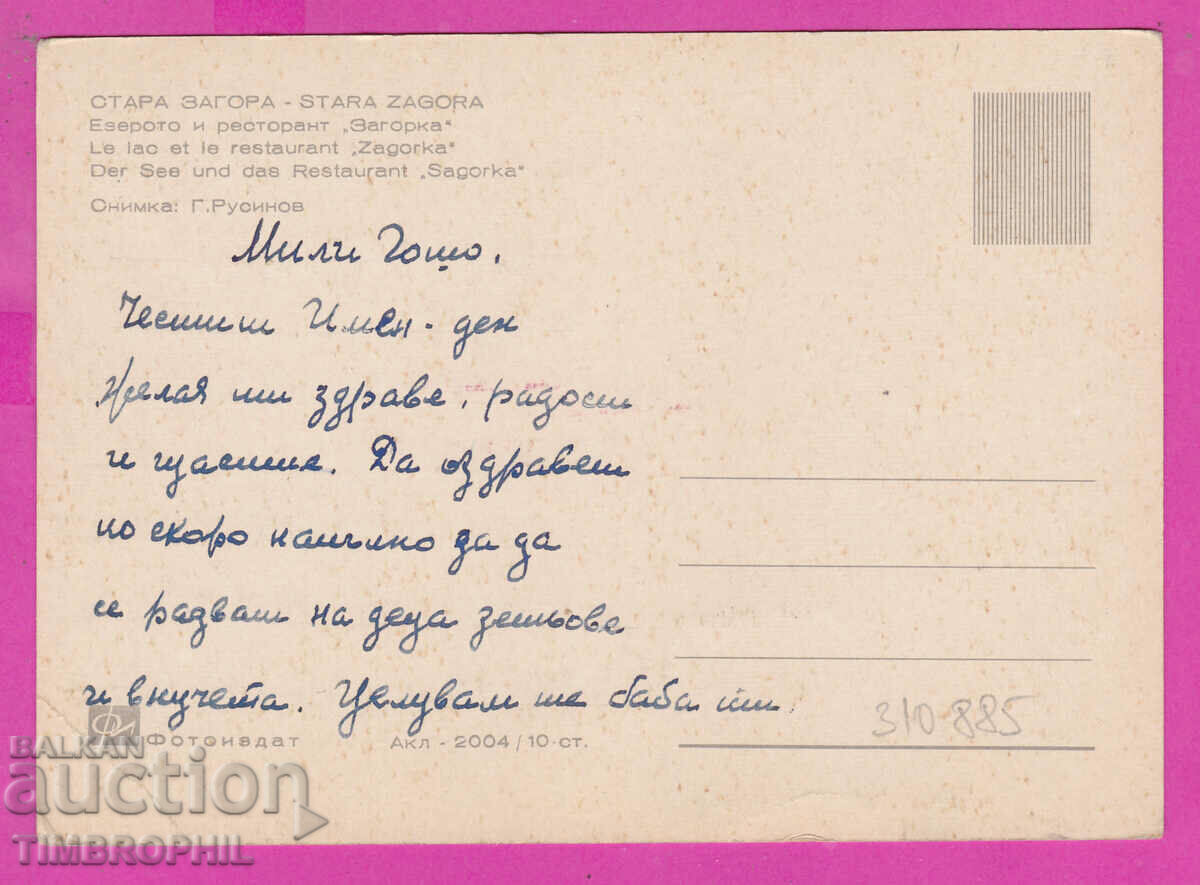 СТАРА ЗАГОРА - STARA ZAGORA
Езерото и ресторант „Загорка“
Le lac et le restaurant „Zagorka“
Der See und das Restaurant „Sagorka“
Снимка: Г.Русинов
Мили Гошо.
Честит Имен-ден
Желая ти здраве, радост
и щастие. Да оздравеш
по скоро напълно за да
се радваш на деца зетьове
и внучета. Целувам те баба ти
310885
Фотоиздат Акл - 2004/10-ст.
BALKAN
auction
TIMBROPHIL